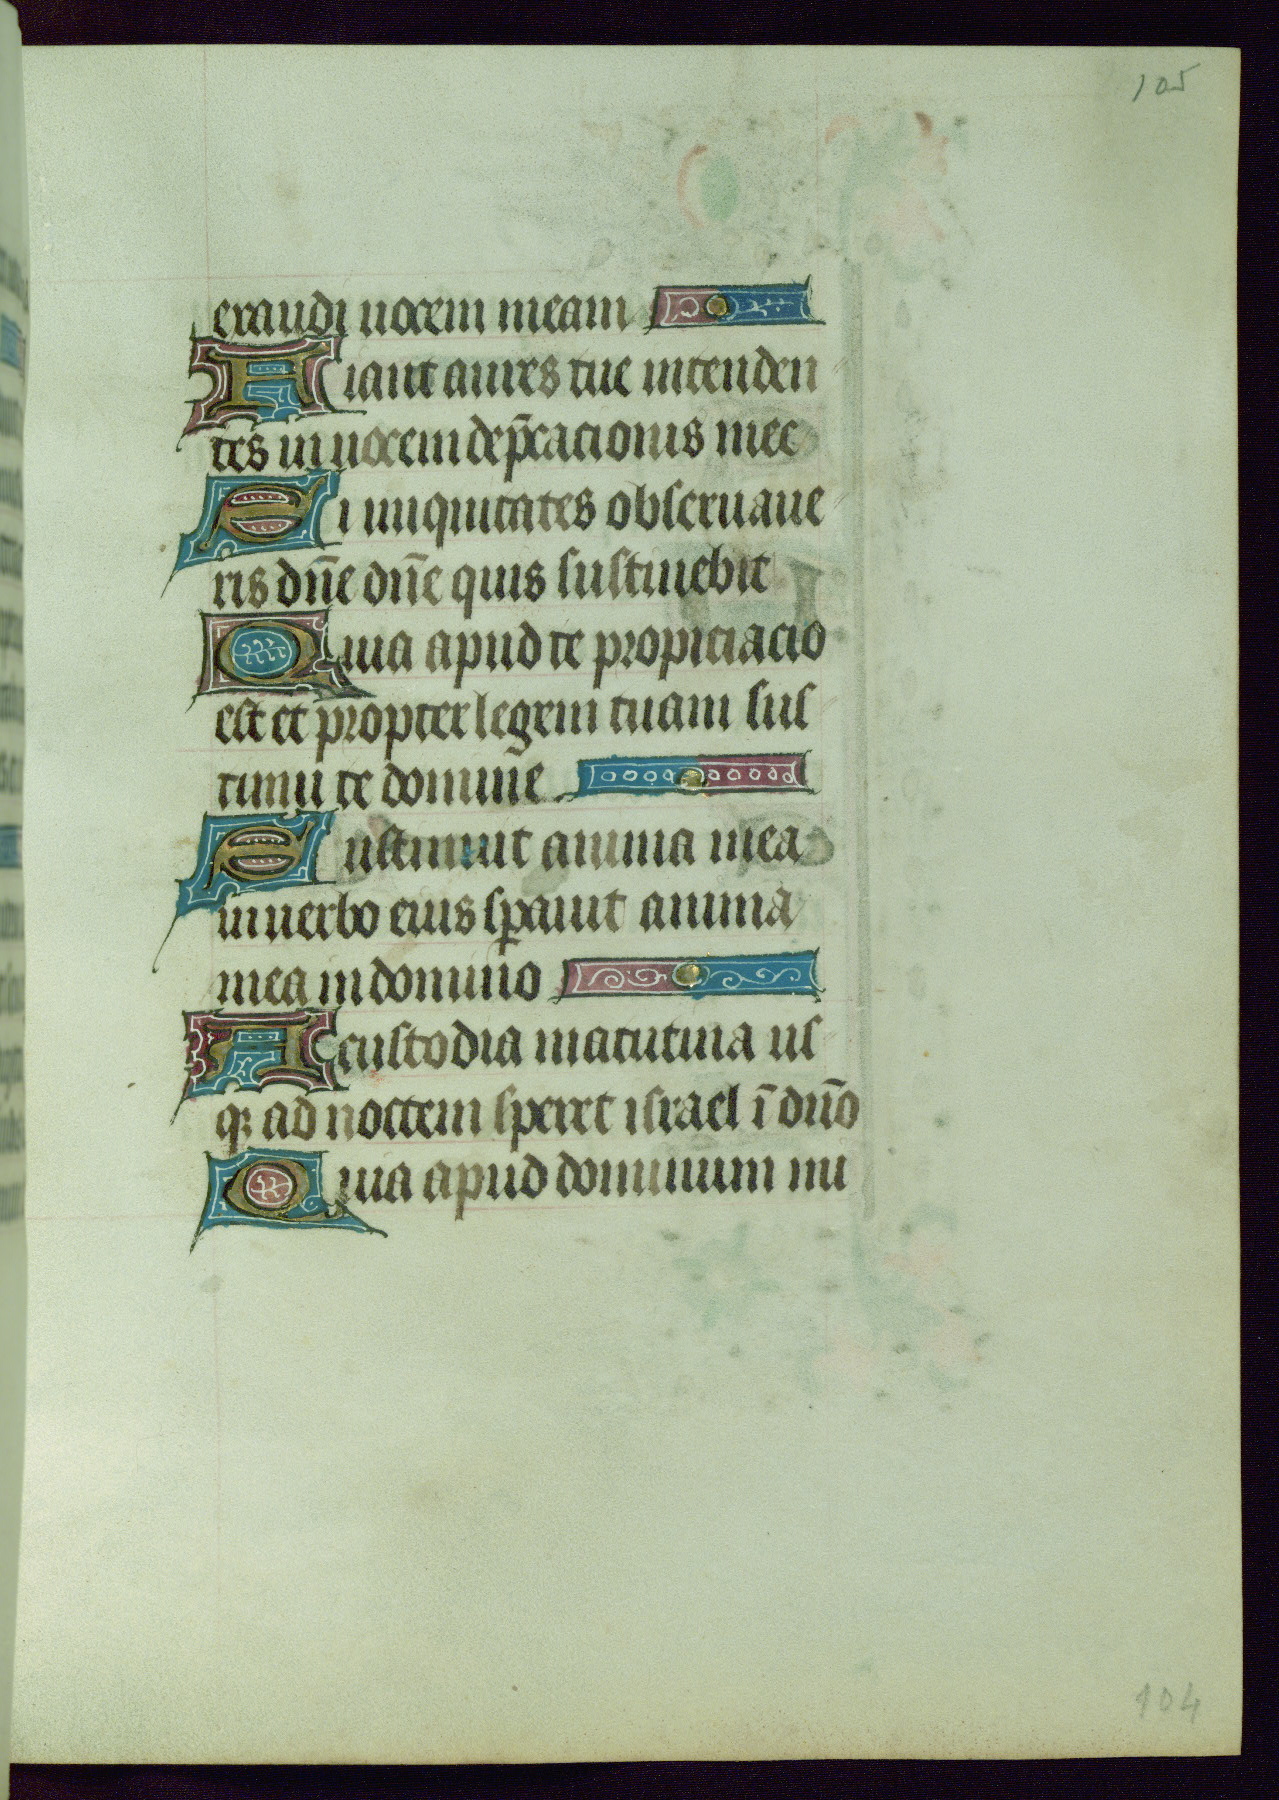 105
exaudi uocem meam
Fiant aures tue intenden
tes in uocem dep̄cacionis mee
Si iniquitates obseruaue
ris dn̄e dn̄e quis sustinebit
Quia apud te propiciacio
est et propter legem tuam sus
tinui te domine
Sustinuit anima mea
in uerbo eius sꝑauit anima
mea in domino
A custodia matutina us
qꝫ ad noctem speret israel ī dn̄o
Quia apud dominum mi
104